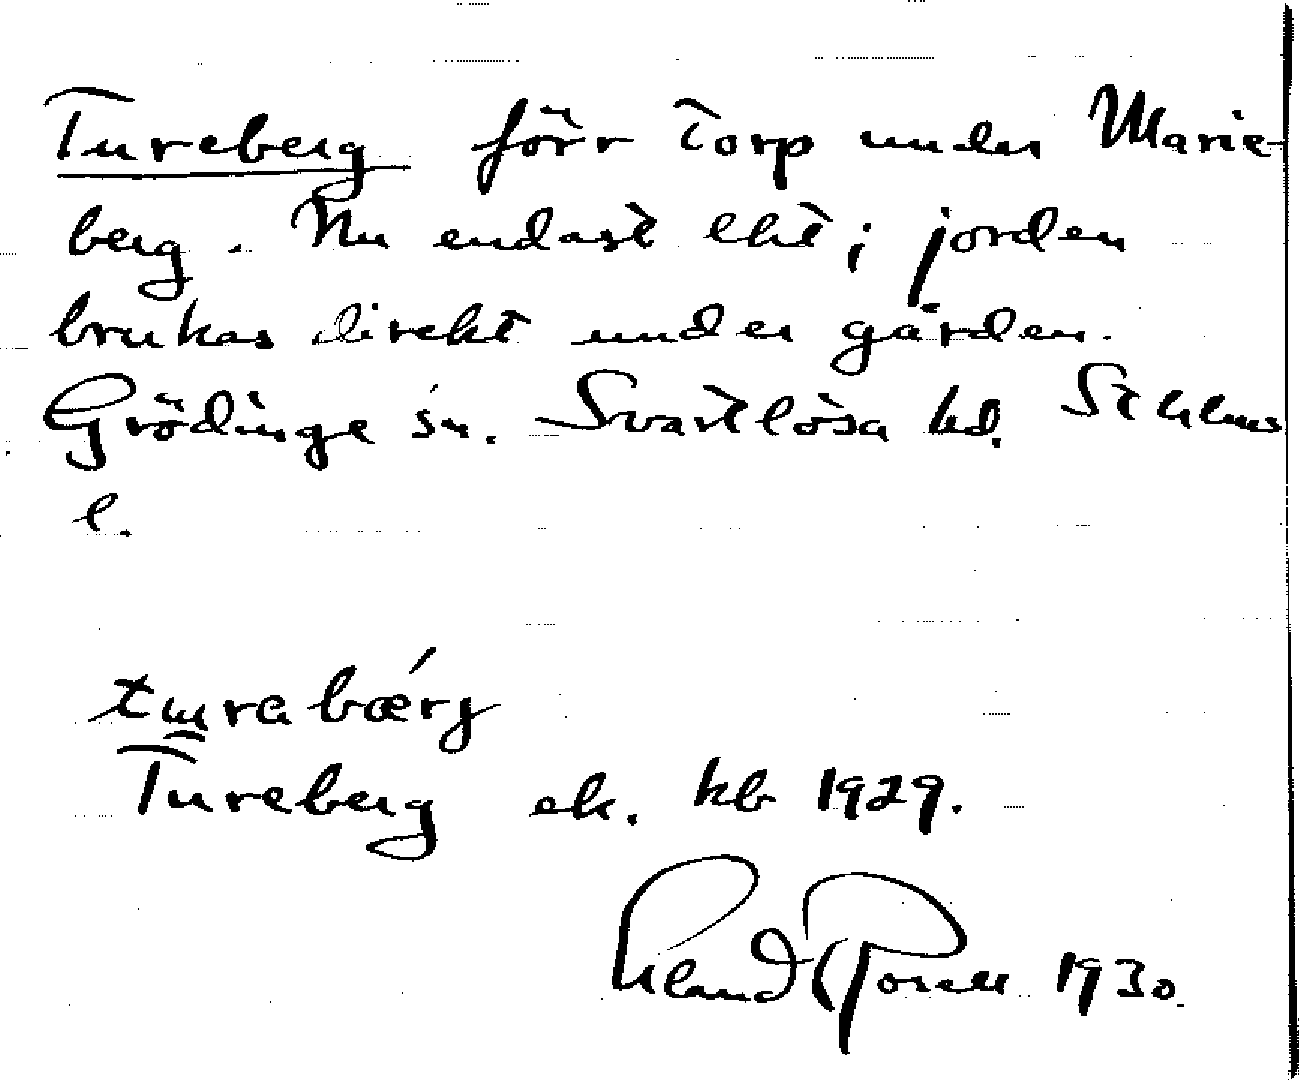 Tureberg förr Torp under Marie-
berg. Nu endast eht; jorden
brukas direkt under gården.
Grödinge sn. Svartlösa hd. Sthlms
l.
tɯrabærg
Tureberg ek. kb 1929.
1930.